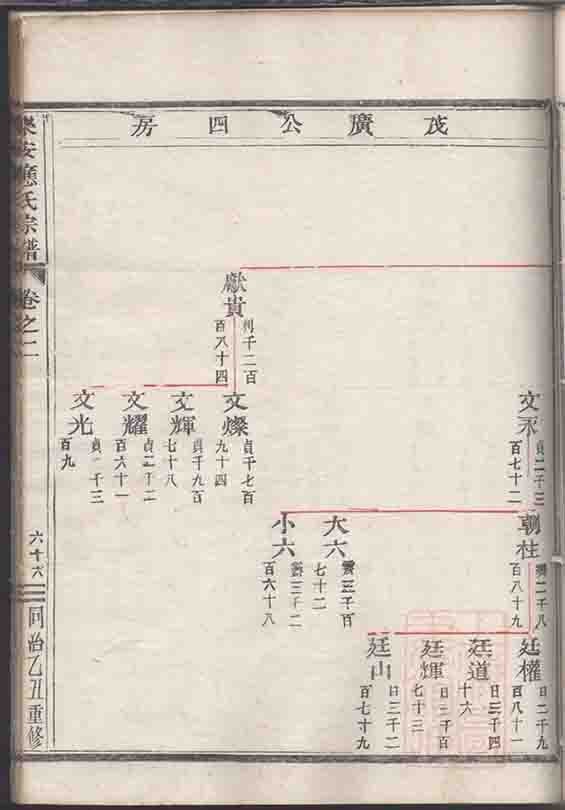 茂廣公四房
文永
貞二千三
百七十二
朝柱
百八十九
廷權
日二千九
百八十一
廷道
日三千四
十六
廷輝
日三千百
七十三
廷山
日三千二
百七十九
大六
七十二
小六
百六十八
獻貴
利千二百
百八十四
文燦
貞千七百
九十四
文輝
貞千九百
七十八
文耀
貞二千二
百六十一
文光
貞二千三
百九
樂安應氏宗譜
卷之二
六十六
同治乙丑重修